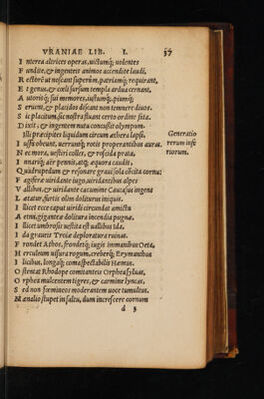 VRANIAE LIB. I. 37
Interea altrices operas, uictumq; uolentes
Fundite, & ingenteis animos accendite laudi,
Rectorē ut noscant superūm, patriamq; requirant,
Et genus, & cœli sursum templa ardua cernant,
Autoriq; sui memores, iustumq; piumq;
Seruent, & placidos discant non temnere diuos.
Sic placitum, sic nostra fluant certo ordine fata.
Dixit, & ingentem nutu concussit olympum.
Illi præcipites liquidum circum æthera lapsi
Iussu obeunt, uerrunq; rotis properantibus auras.
Nec mora, uestiri colles, & roscida prata,
Ignariq; aër pennis, atq; æquora caudis,
Quadrupedum & resonare graui sola obsita cornu:
Fagifera uiridante iugo, uiridantibus alpes
Vallibus, & uiridante cacumine Caucasus ingens
Lætatur, furtis olim dolituus iniquis.
Illicet ecce caput uiridi circundat amictu
Aetna, gigantea dolitura incendia pugna.
Illicet umbrosis uestita est uallibus Ida,
Ida grauis Troiæ deploratura ruinas.
Frondet Athos, frondetq; iugis immanibus Oeta,
Herculeum uisura rogum, crebrisq; Erymanthus
Ilicibus, longaq; coma spectabilis Hæmus.
Ostentat Rhodope comitanteis Orphea syluas,
Orphea mulcentem tigres, & carmine lyncas,
Sed non fœmineos moderantem uoce tumultus.
Mænalio stupet in saltu, dum increscere cornum
Generatio
rerum infe
riorum.
d 5